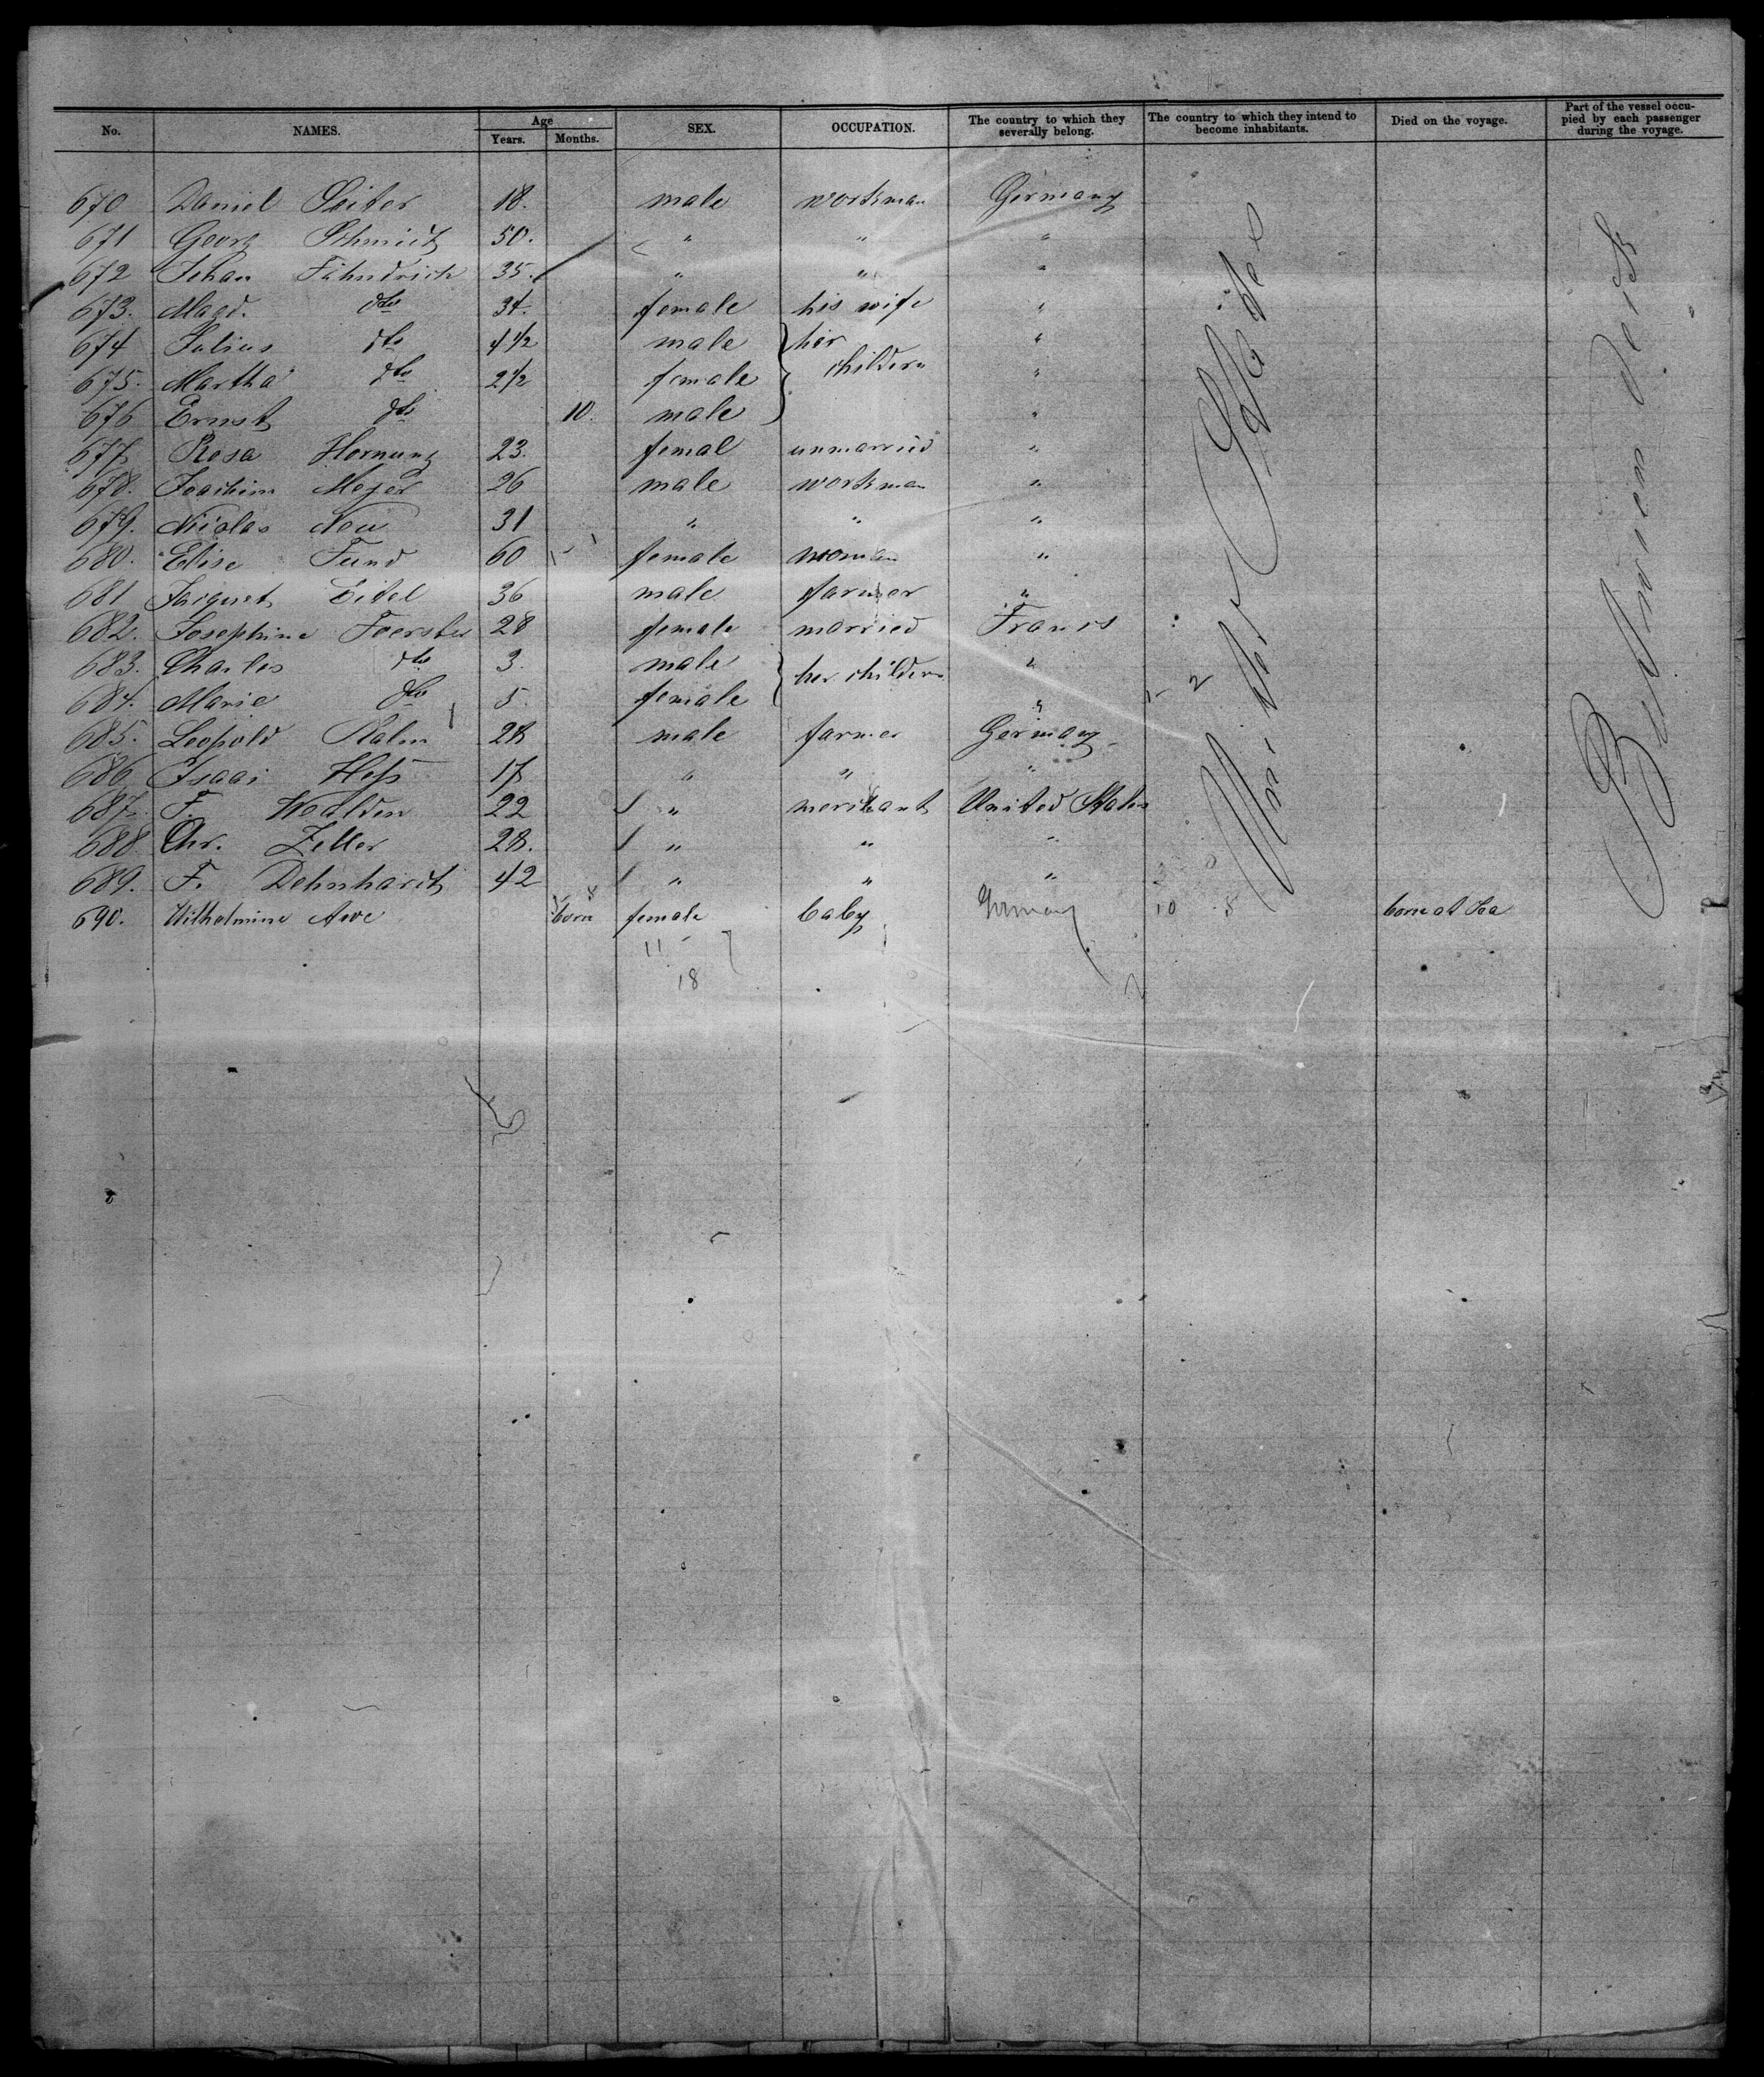 No. NAMES. Age Years. Months. SEX. OCCUPATION. The country to which they severally belong. The country to which they intend to become inhabitants. Died on the voyage. Part of the vessel occupied by each passenger during the voyage.
670 Daniel Seiter 18. male workman Germany
671 Georg Schmidt 50. " " "
672 Johan Fähndrich 35. " " "
673. Magd. dto 34. female his wife "
674 Julius dto 4 1/2 male her "
675. Martha dto 2 1/2 female children "
676 Ernst dto 10. male "
677 Rosa Hornung 23. femal unmarried "
678. Joachim Meyer 26 male workman "
679. Nicolas Neu 31 " " "
680. Elise Fund 60 female woman "
681 Eitel 36 male farmer "
682. Josephine Foerster 28 female married
683. Charles dto 3. male her children "
684. Marie dto 5. female "
685. Leopold Kalm 28 male farmer Germany
686 Isaac Heß 17 " " "
687. F. Woalden 22 " merchant United States
688 Chr. Zeller 28. " " "
689. F. Dehnhardt 42 " " "
690. Wilhelmine Awe born female baby Germany 10 8 born at Sea
United States
Between deck
11
18